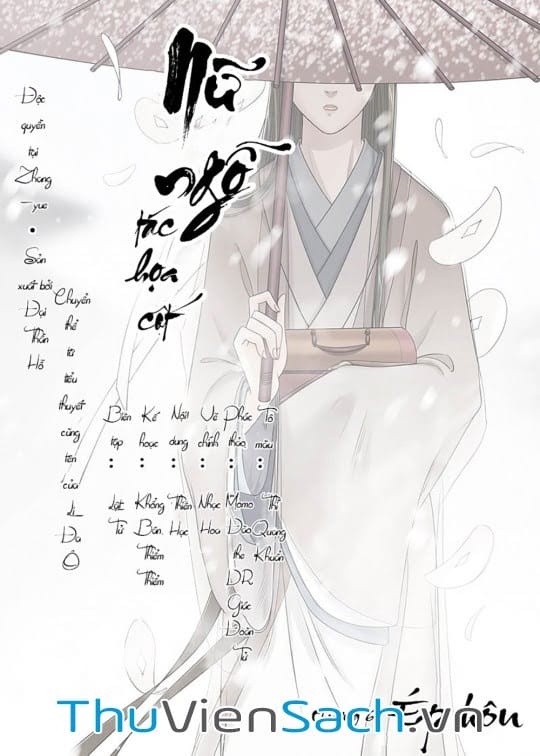 Nữ
ngỗ
tác
họa
cốt
Độc quyền tại Zhong-yue • Sản xuất bởi Đại Thần Hỗ
Chuyển thể từ tiểu thuyết cùng tên của Li Đa Ô
Biên tập :
Kế hoạch : Khổng Bân. Thiêm Thiêm
Nội dung : Thiên Hạc
Vẽ chính : Nhạc Hoa
Phúc thảo : Momo Đào the DR Giác Đoàn Tử
Tô màu : Thi Quang Khuẩn
Ép hôn
ThuVienSach.vn